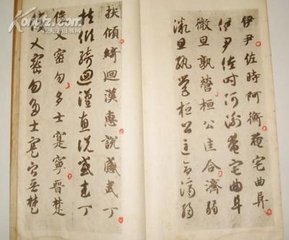 伊尹佐時阿衡奄宅曲阜
伊尹佐時阿衡奄宅曲阜
微旦孰營桓公匡合濟弱
微旦孰營桓公匡合濟弱
扶傾綺迴漢惠說感武丁
扶傾綺迴漢惠說感武丁
俊乂密勿多士寔寧晉楚
俊乂密勿多士寔寧晉楚